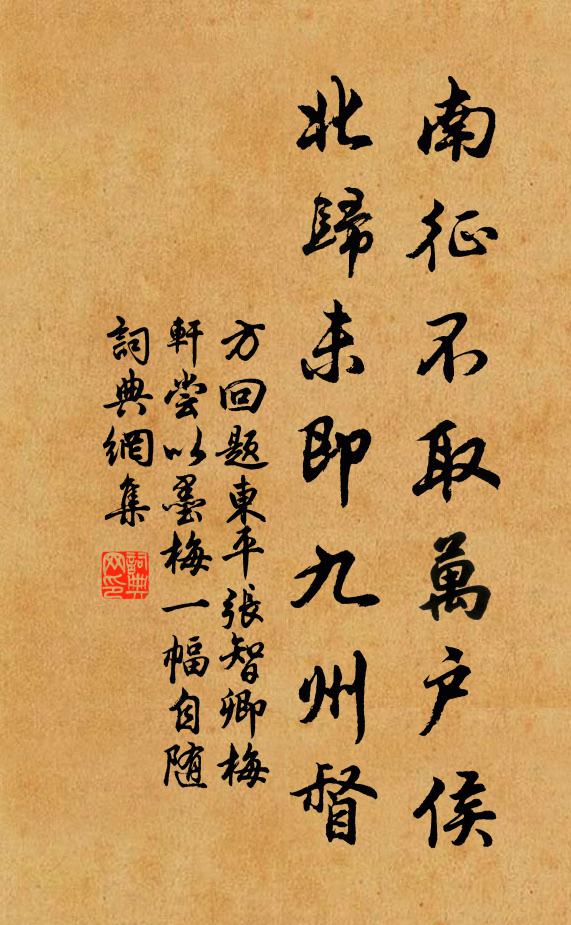 南征不取萬户侯
北歸未即九州督
方回题東平張智卿梅
軒嘗以墨梅一幅自随
詞典網集
詞典
网印